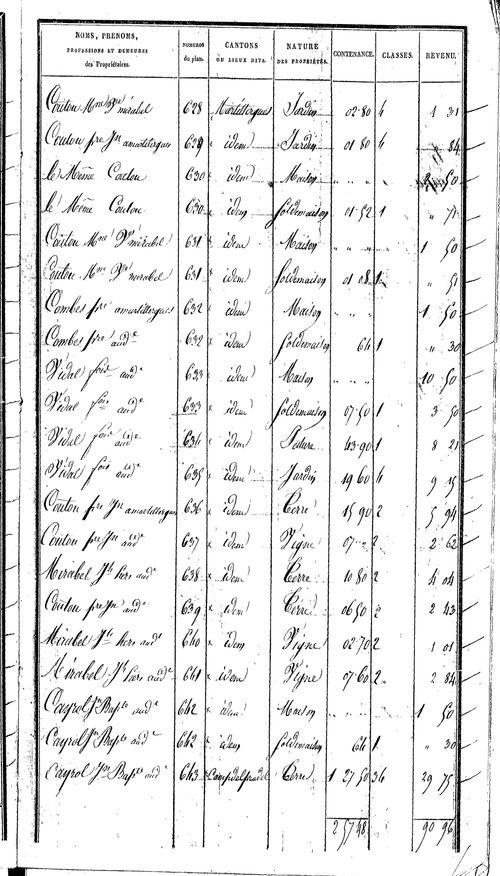 NOMS, PRENOMS,
PROFESSIONS ET DEMEURES
des Propriétaires.
NUMEROS
du plan.
CANTONS
OU LIEUX DITS.
NATURE
DES PROPRIÉTÉS.
CONTENANCE.
CLASSES.
REVENU.
Couton Mme Vve mirabel 628 Martillergues Jardin 02 80 4 1 31
Couton pre Jn amartillergues 629 idem Jardin 01 80 4 84
le Même Couton 630 idem Maison 50
le Même Couton 630 idem soldemaison 01 52 1 " 71
Couton Mme Vve mirabel 631 idem Maison 1 50
Couton Mme Vve mirabel 631 idem soldemaison 01 08 1 " 51
Combes pre amartillergues 632 idem Maison 1 50
Combes pre aude 632 idem soldemaison 64 1 " 30
Vidal fois aude 633 idem Maison 10 50
Vidal fois aude 633 idem soldemaison 07 50 1 3 50
Vidal fois aude 634 idem Pature 43 90 1 8 21
Vidal fois aude 635 idem Jardin 19 60 4 9 15
Couton pre Jn amartillergues 636 idem Terre 15 90 2 5 94
Couton pre Jn aude 637 idem Vigne 07 " 2 2 62
Mirabel Jh hers aude 638 idem Terre 10 80 2 4 04
Couton pre Jn aude 639 idem Terre 06 50 2 2 43
Mirabel Jh hers aude 640 idem Vigne 02 70 2 1 01
Mirabel Jh hers aude 641 idem Vigne 07 60 2 2 84
Cayrol Jn Bapte aude 642 idem Maison 1 50
Cayrol Jn Bapte aude 642 idem soldemaison 64 1 " 30
Cayrol Jn Bapte aude 643 Campdelpradel Terre 1 27 50 34 29 75
2 57 48 90 96